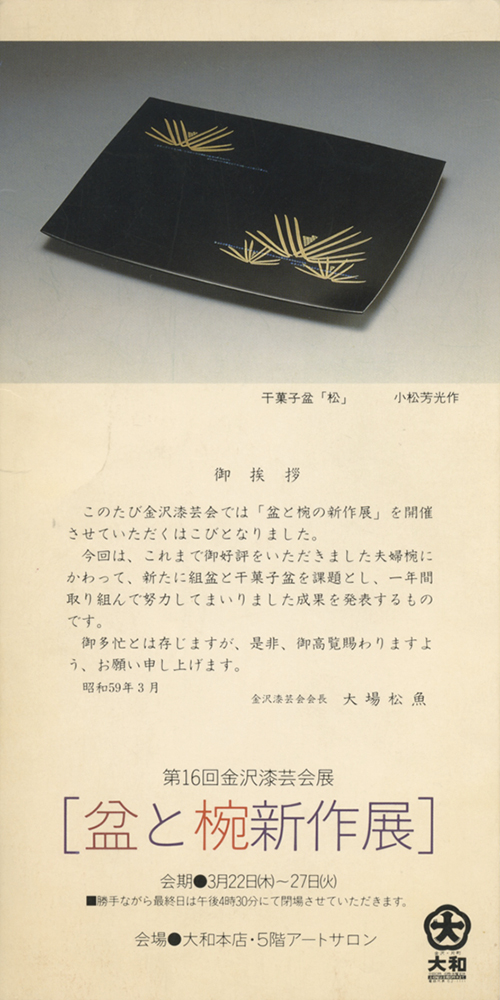 干菓子盆「松」　　小松芳光作
御挨拶
このたび金沢漆芸会では「盆と椀の新作展」を開催
させていただくはこびとなりました。
今回は、これまで御好評をいただきました夫婦椀に
かわって、新たに組盆と干菓子盆を課題とし、一年間
取り組んで努力してまいりました成果を発表するもの
です。
御多忙とは存じますが、是非、御高覧賜わりますよ
う、お願い申し上げます。
昭和59年3月
金沢漆芸会会長　大場松魚
第16回金沢漆芸会展
[盆と椀新作展]
会期●3月22日㈭〜27日㈫
■勝手ながら最終日は午後4時30分にて閉場させていただきます。
会場●大和本店・5階アートサロン
大
大和